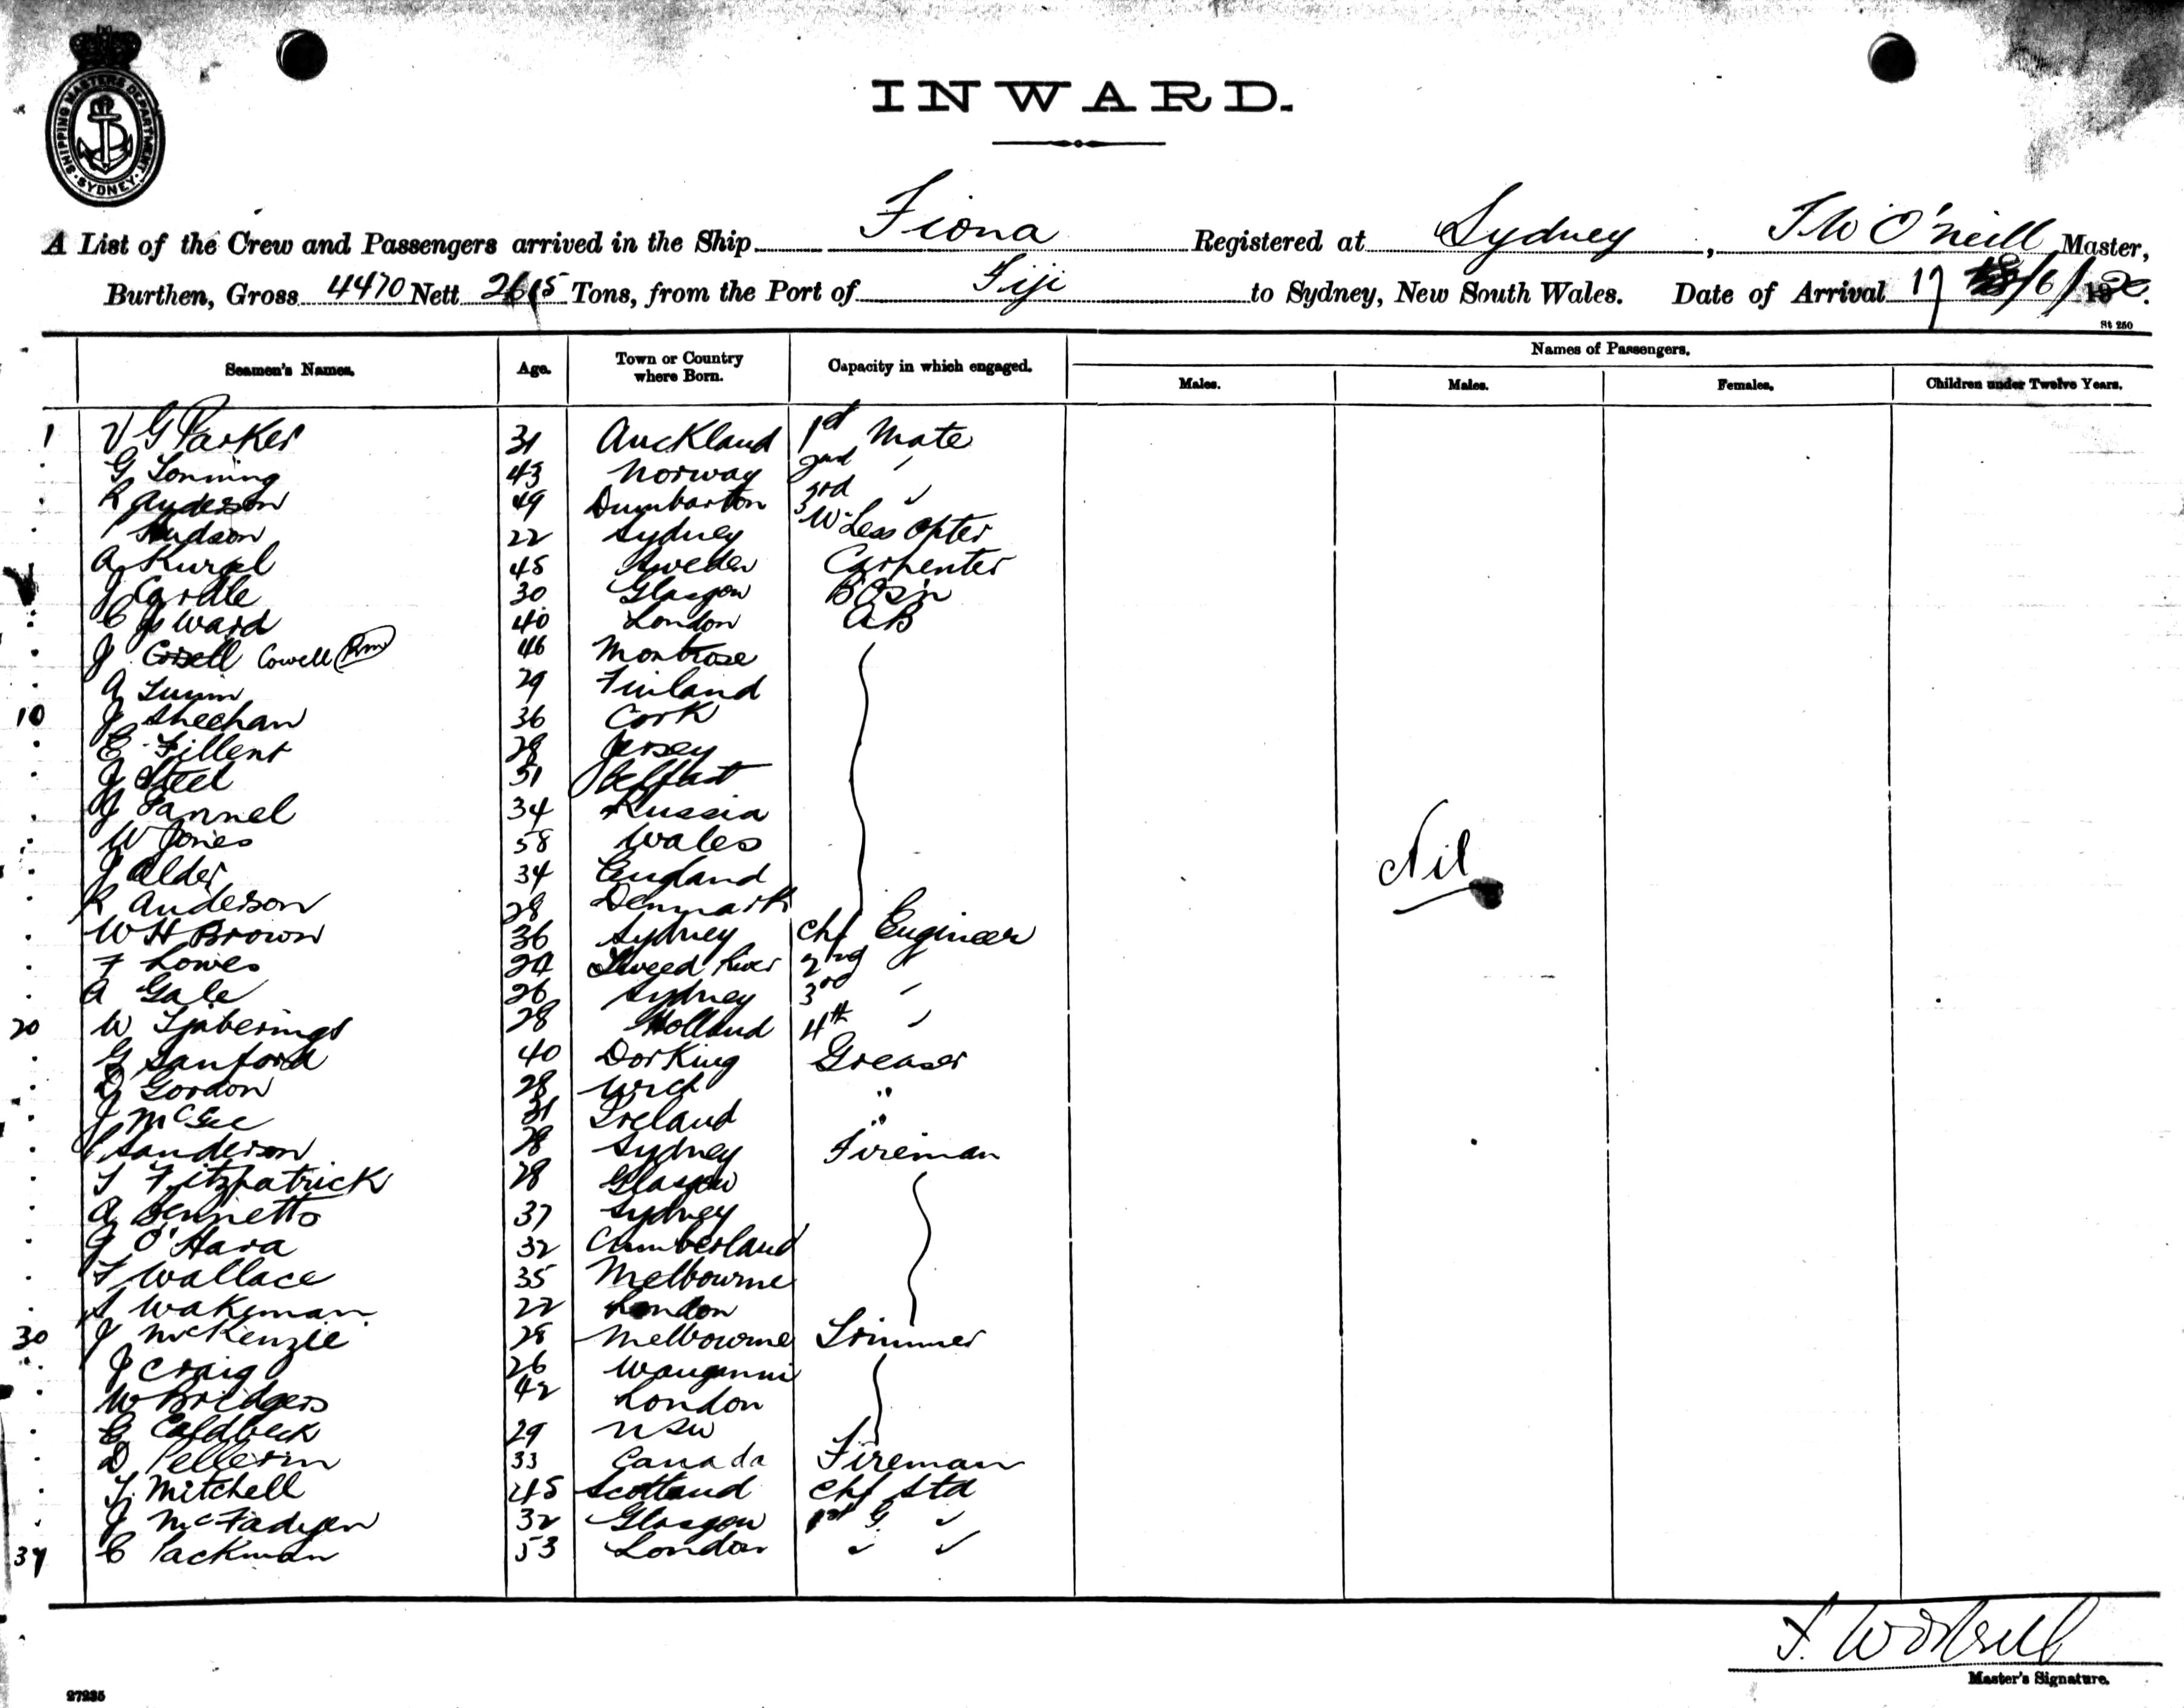 SHIPPING MASTERS DEPARTMENT SYDNEY
INWARD.
A List of the Crew and Passengers arrived in the Ship Fiona Registered at Sydney, T W O'Neill Master,
Burthen, Gross 4470 Nett 2615 Tons, from the Port of Fiji to Sydney, New South Wales. Date of Arrival 17 /6/
St 250
Seamen's Names. Age. Town or Country where Born. Capacity in which engaged. Names of Passengers.
Males. Males. Females. Children under Twelve Years.
1 V G Parker 31 Auckland 1st Mate
G Lonning 43 Norway 2nd "
R Anderson 49 Dumbarton 3rd "
Hudson 22 Sydney W-Less Opter
A 45 Sweden Carpenter
J 30 Glasgow BOs'n
C Ward 40 London AB
J Cowell 46 Montrose
A 29 Finland
10 J Sheehan 36 Cork
E Fillent 28 Jersey
J Steel 51 Belfast
J Pannel 34 Russia
W Jones 58 Wales
J Alder 34 England
R Anderson 28 Denmark
W H Brown 36 Sydney Chf Engineer
F Lowes 24 Tweed River 2nd
A Gale 26 Sydney 3rd "
20 W 28 Holland 4th "
G Sanford 40 Dorking Greaser
D Gordon 28 "
J McGee 31 Ireland "
Sanderson 28 Sydney Fireman
T Fitzpatrick 28 Glasgow
A Bennetts 37 Sydney
J O'Hara 32 Cumberland
T Wallace 35 Melbourne
S Wakeman 22 London
30 J McKenzie 28 Melbourne Trimmer
J Craig 26 Wanganui
W Bridgers 42 London
E Caldbeck 29 NSW
D Pellerin 33 Canada Fireman
T. Mitchell 45 Scotland Chf Std
J McFadyen 32 Glasgow 1st G. "
37 C Packman 53 London " "
Nil
Master's Signature.
27235